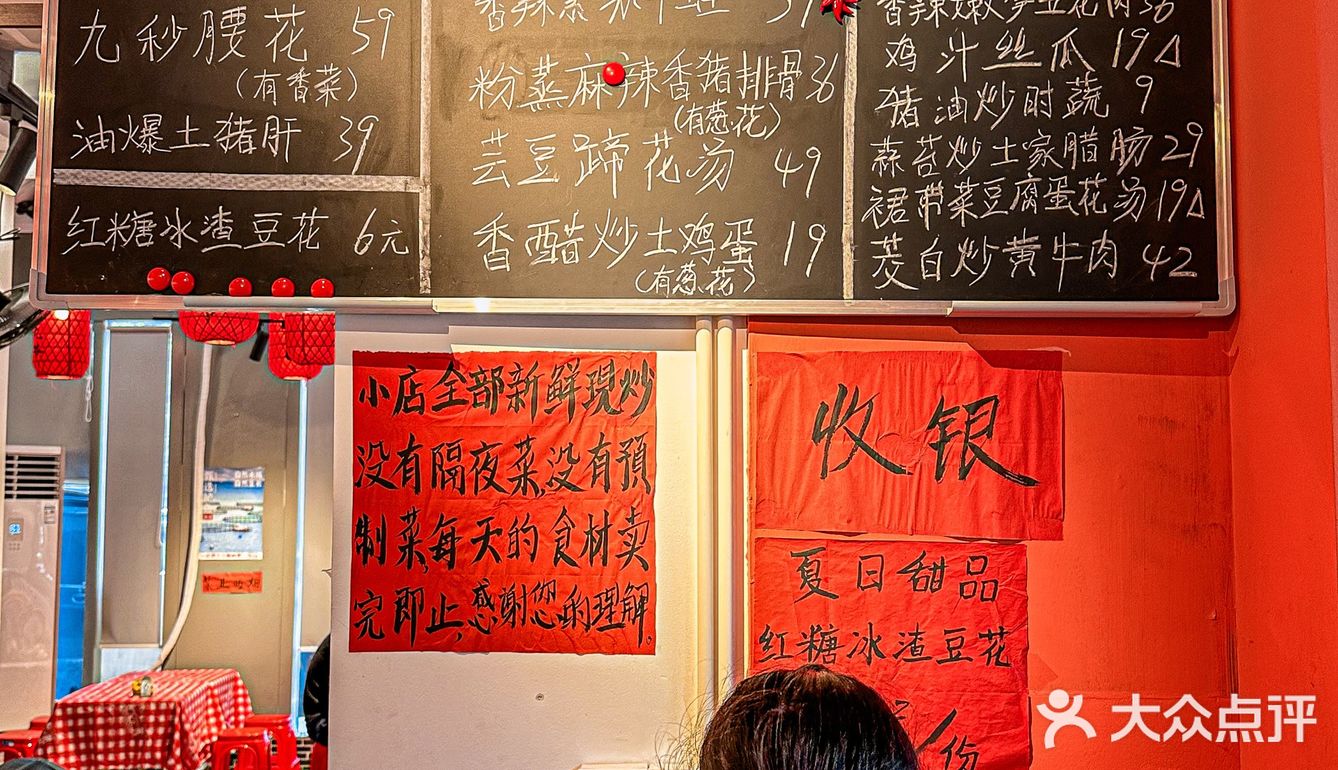 九秒腰花 59
(有香菜)
油爆土猪肝 39
红糖冰渣豆花 6元
粉蒸麻辣香猪排骨 36
(有葱花)
芸豆蹄花汤 49
香醋炒土鸡蛋 19
(有葱花)
鸡汁丝瓜 19
猪油炒时蔬 9
蒜苔炒土家腊肠 29
裙带菜豆腐蛋花汤 19
茭白炒黄牛肉 42
小店全部新鲜現炒
没有隔夜菜,没有預
制菜,每天的食材卖
完即止,感谢您的理解。
收银
夏日甜品
红糖冰渣豆花
份
大众点评